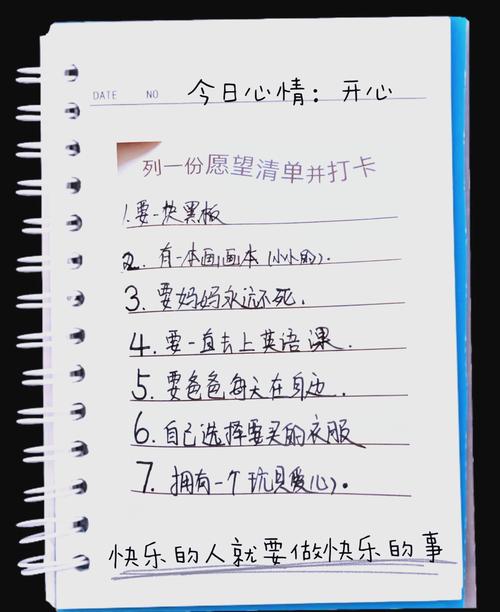 DATE NO 今日心情：开心
列一份愿望清单并打卡
1.要一块黑板
2.有一本画画本(小小的).
3.要妈妈永远不死.
4.要一直去上英语课.
5.要爸爸每天在身边.
6.自己选择要买的衣服
7.拥有一个玩具爱心.
快乐的人就要做快乐的事